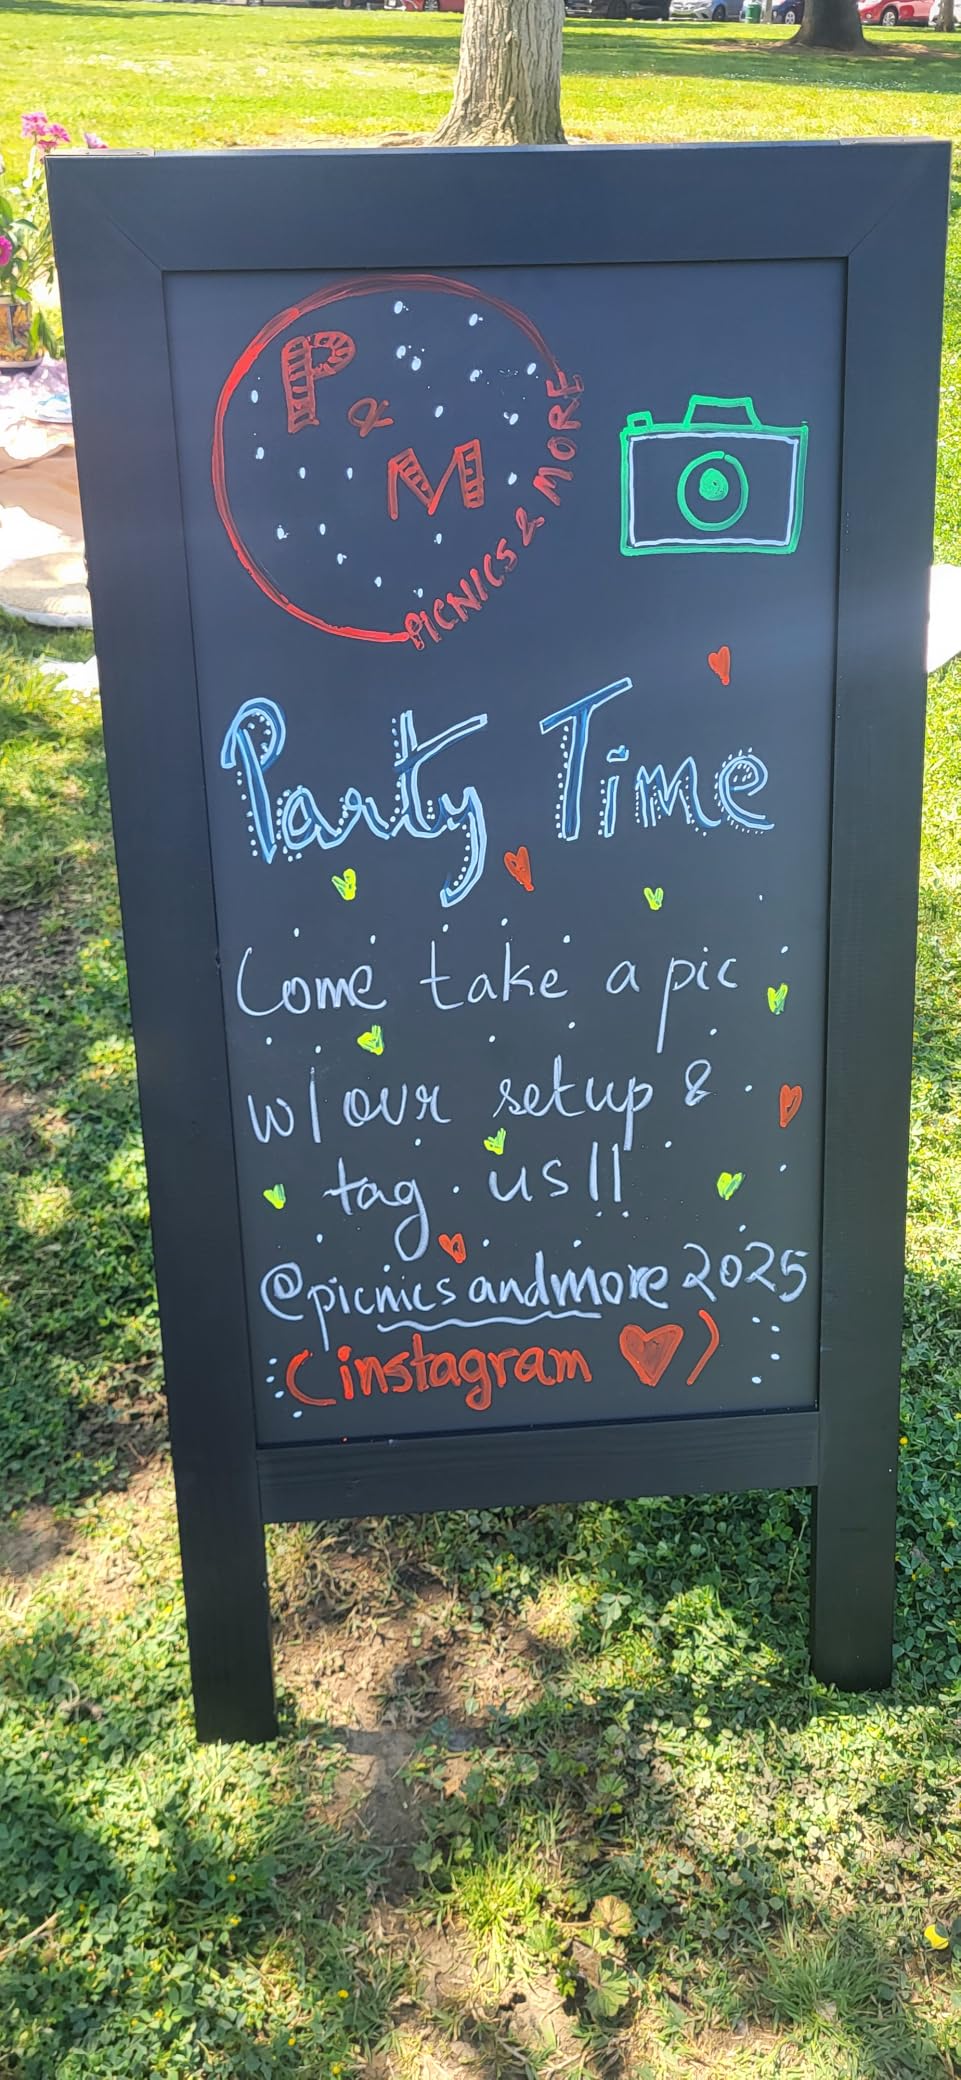 P
&
M
PICNICS & MORE
Party Time
Come take a pic
w/ our setup &
tag us!!
@picnicsandmore2025
(instagram ♥)